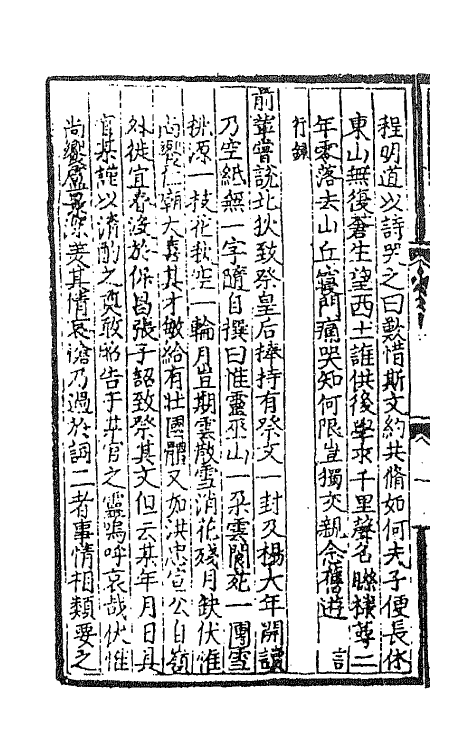 程明道以詩哭之曰歎惜斯文約共脩如何夫子便長休
東山無復蒼生望西土誰供後學求千里聲名聯棣萼二
年零落去山丘寢門慟哭知何限豈獨交親念舊遊 言
行錄
前輩嘗說北狄致祭皇后捧持有祭文一封及楊大年開讀
乃空紙無一字隨自撰曰惟靈巫山一朵雲閬苑一團雪
桃源一枝花秋空一輪月豈期雲散雪消花殘月缺伏惟
尚饗仁朝大喜其才敏給有壯國體又如洪忠宣公自嶺
外徙宜春沒於保昌張子韶致祭其文但云某年月日具
官某謹以清酌之奠敢昭告于某官之靈嗚呼哀哉伏惟
尚饗盧景深美其情哀愴乃過於詞二者事情相類要之